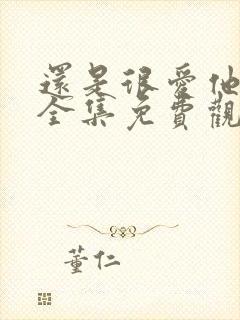 還是很愛他
全集免費觀
董仁